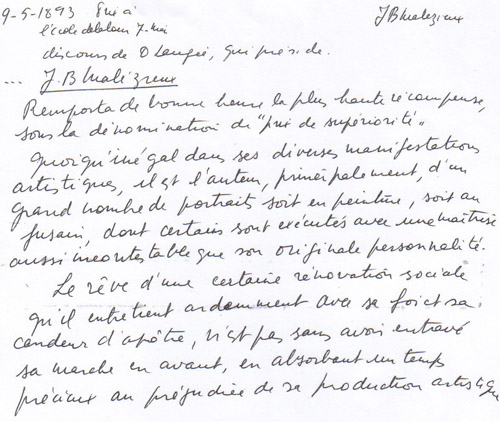 9-5-1893
JB Malézieux
l'école
discours de D Laugée, qui préside.
... J.B Malézieux
Remporta de bonne heure la plus haute récompense,
sous la dénomination de "prix de supériorité".
Quoiqu'inégal dans ses diverses manifestations
artistiques, il est l'auteur, principalement, d'un
grand nombre de portraits soit en peinture, soit au
fusain, dont certains sont exécutés avec une maîtrise
aussi incontestable que son originale personnalité.
Le rêve d'une certaine rénovation sociale
qu'il entretient ardemment avec sa foi et sa
candeur d'apôtre, n'est pas sans avoir entravé
sa marche en avant, en absorbant un temps
précieux au préjudice de sa production artistique